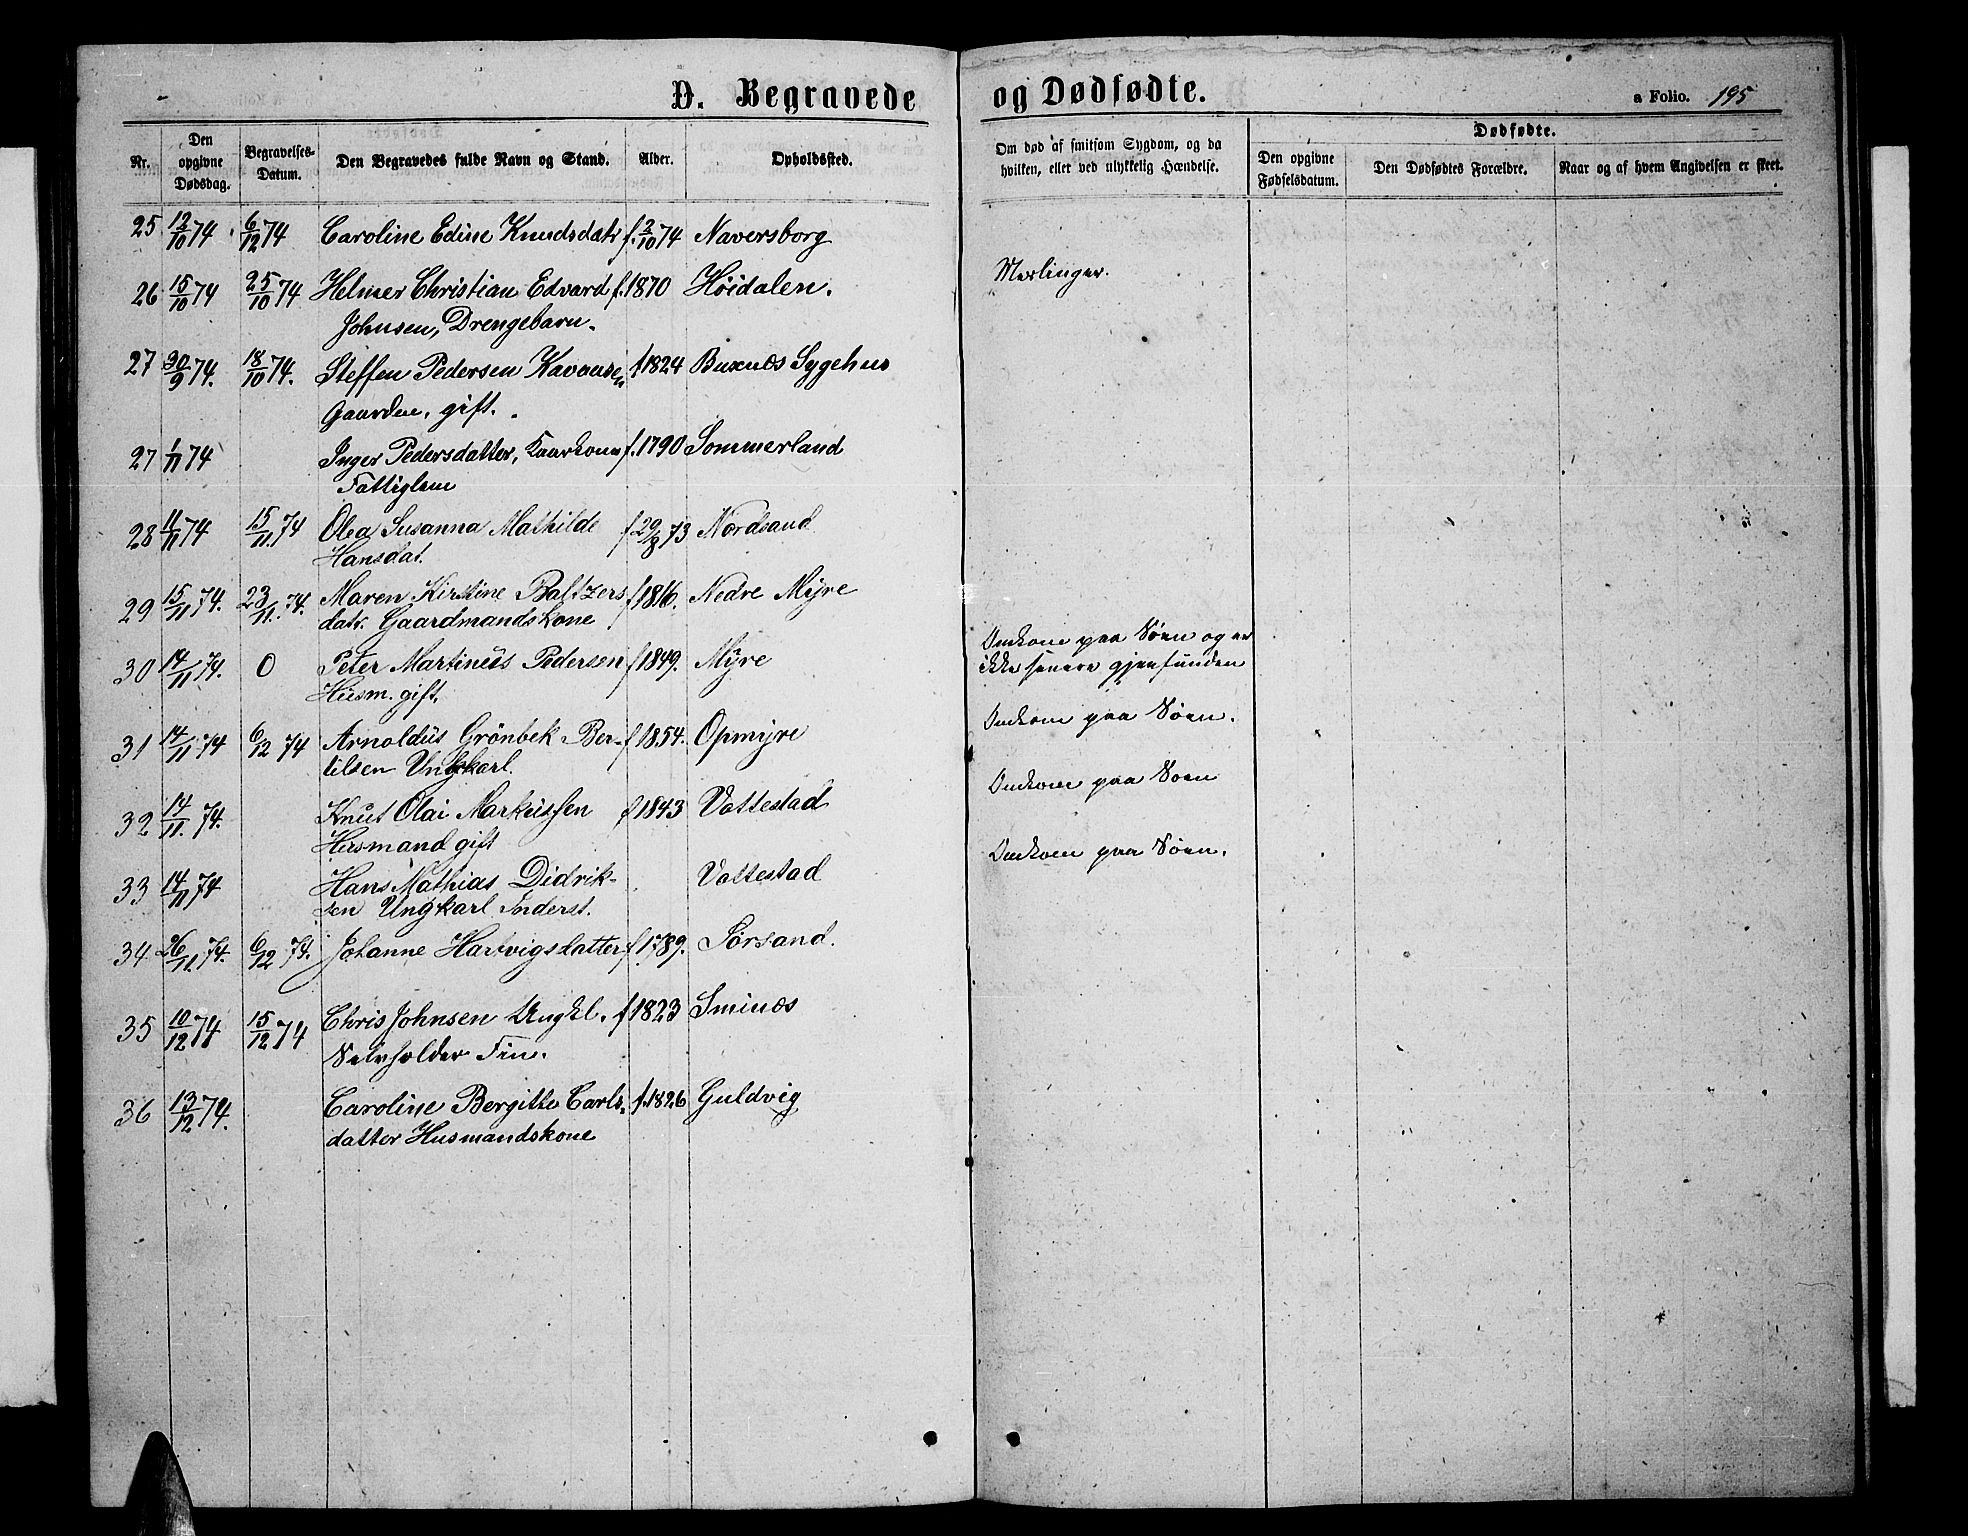 D. Begravede og Dødfødte.
a Folio. 195
Nr.
Den opgivne Dødsdag.
Begravelses-Datum.
Den Begravedes fulde Navn og Stand.
Alder.
Opholdssted.
Om død af smitsom Sygdom, og da hvilken, eller ved ulykkelig Hændelse.
Dødfødte.
Den opgivne Fødselsdatum.
Den Dødfødtes Forældre.
Naar og af hvem Angivelsen er skeet.
25 12/10 74 6/12 74 Caroline Edine Knudsdatr f. 2/10 74 Naversborg
26 15/10 74 25/10 74 Helmer Christian Edvard f. 1870 Høidalen.
Johnsen, Drengebarn.
27 30/9 74. 18/10 74. Steffen Pedersen f 1824 Buxnæs Sygehus
Gaarden, gift.
27 1/11 74 Inger Pedersdatter, f. 1790 Sommerland
Fattiglem
28 11/11 74 15/11 74 Olea Susanna Mathilde f 29/8 73 Nordsand
Hansdat.
29 15/11 74. 23/11. 74. Maren Kirstine Baltzers f 1816. Nedre Myre
datr. Gaardmandskone
30 14/11 74. 0 Peter Martinus Pedersen f 1849. Myre Omkom paa Søen og er
Husm. gift. ikke senere gjenfunden
31 14/11 74 6/12 74 Arnoldus Grönbek Ber- f 1854. Opmyre Omkom paa Søen.
tilsen Ungkarl.
32 14/11. 74. Knut Olai Markussen f 1843 Vottestad Omkom paa Søen
Husmand gift
33 14/11 74 Hans Mathias Didrik- Vottestad Omkom paa Søen.
sen Ungkarl Inderst.
34 26/11. 74. 6/12 74. Johanne Hartvigsdatter f 1789. Sörsand.
35 10/12 74 15/12 74 Chris Johnsen Ungkl. f 1823 Sminæs
Selvholder Fin.
36 13/12 74. Caroline Bergitte Carls- f. 1826 Guldvig
datter Husmandskone